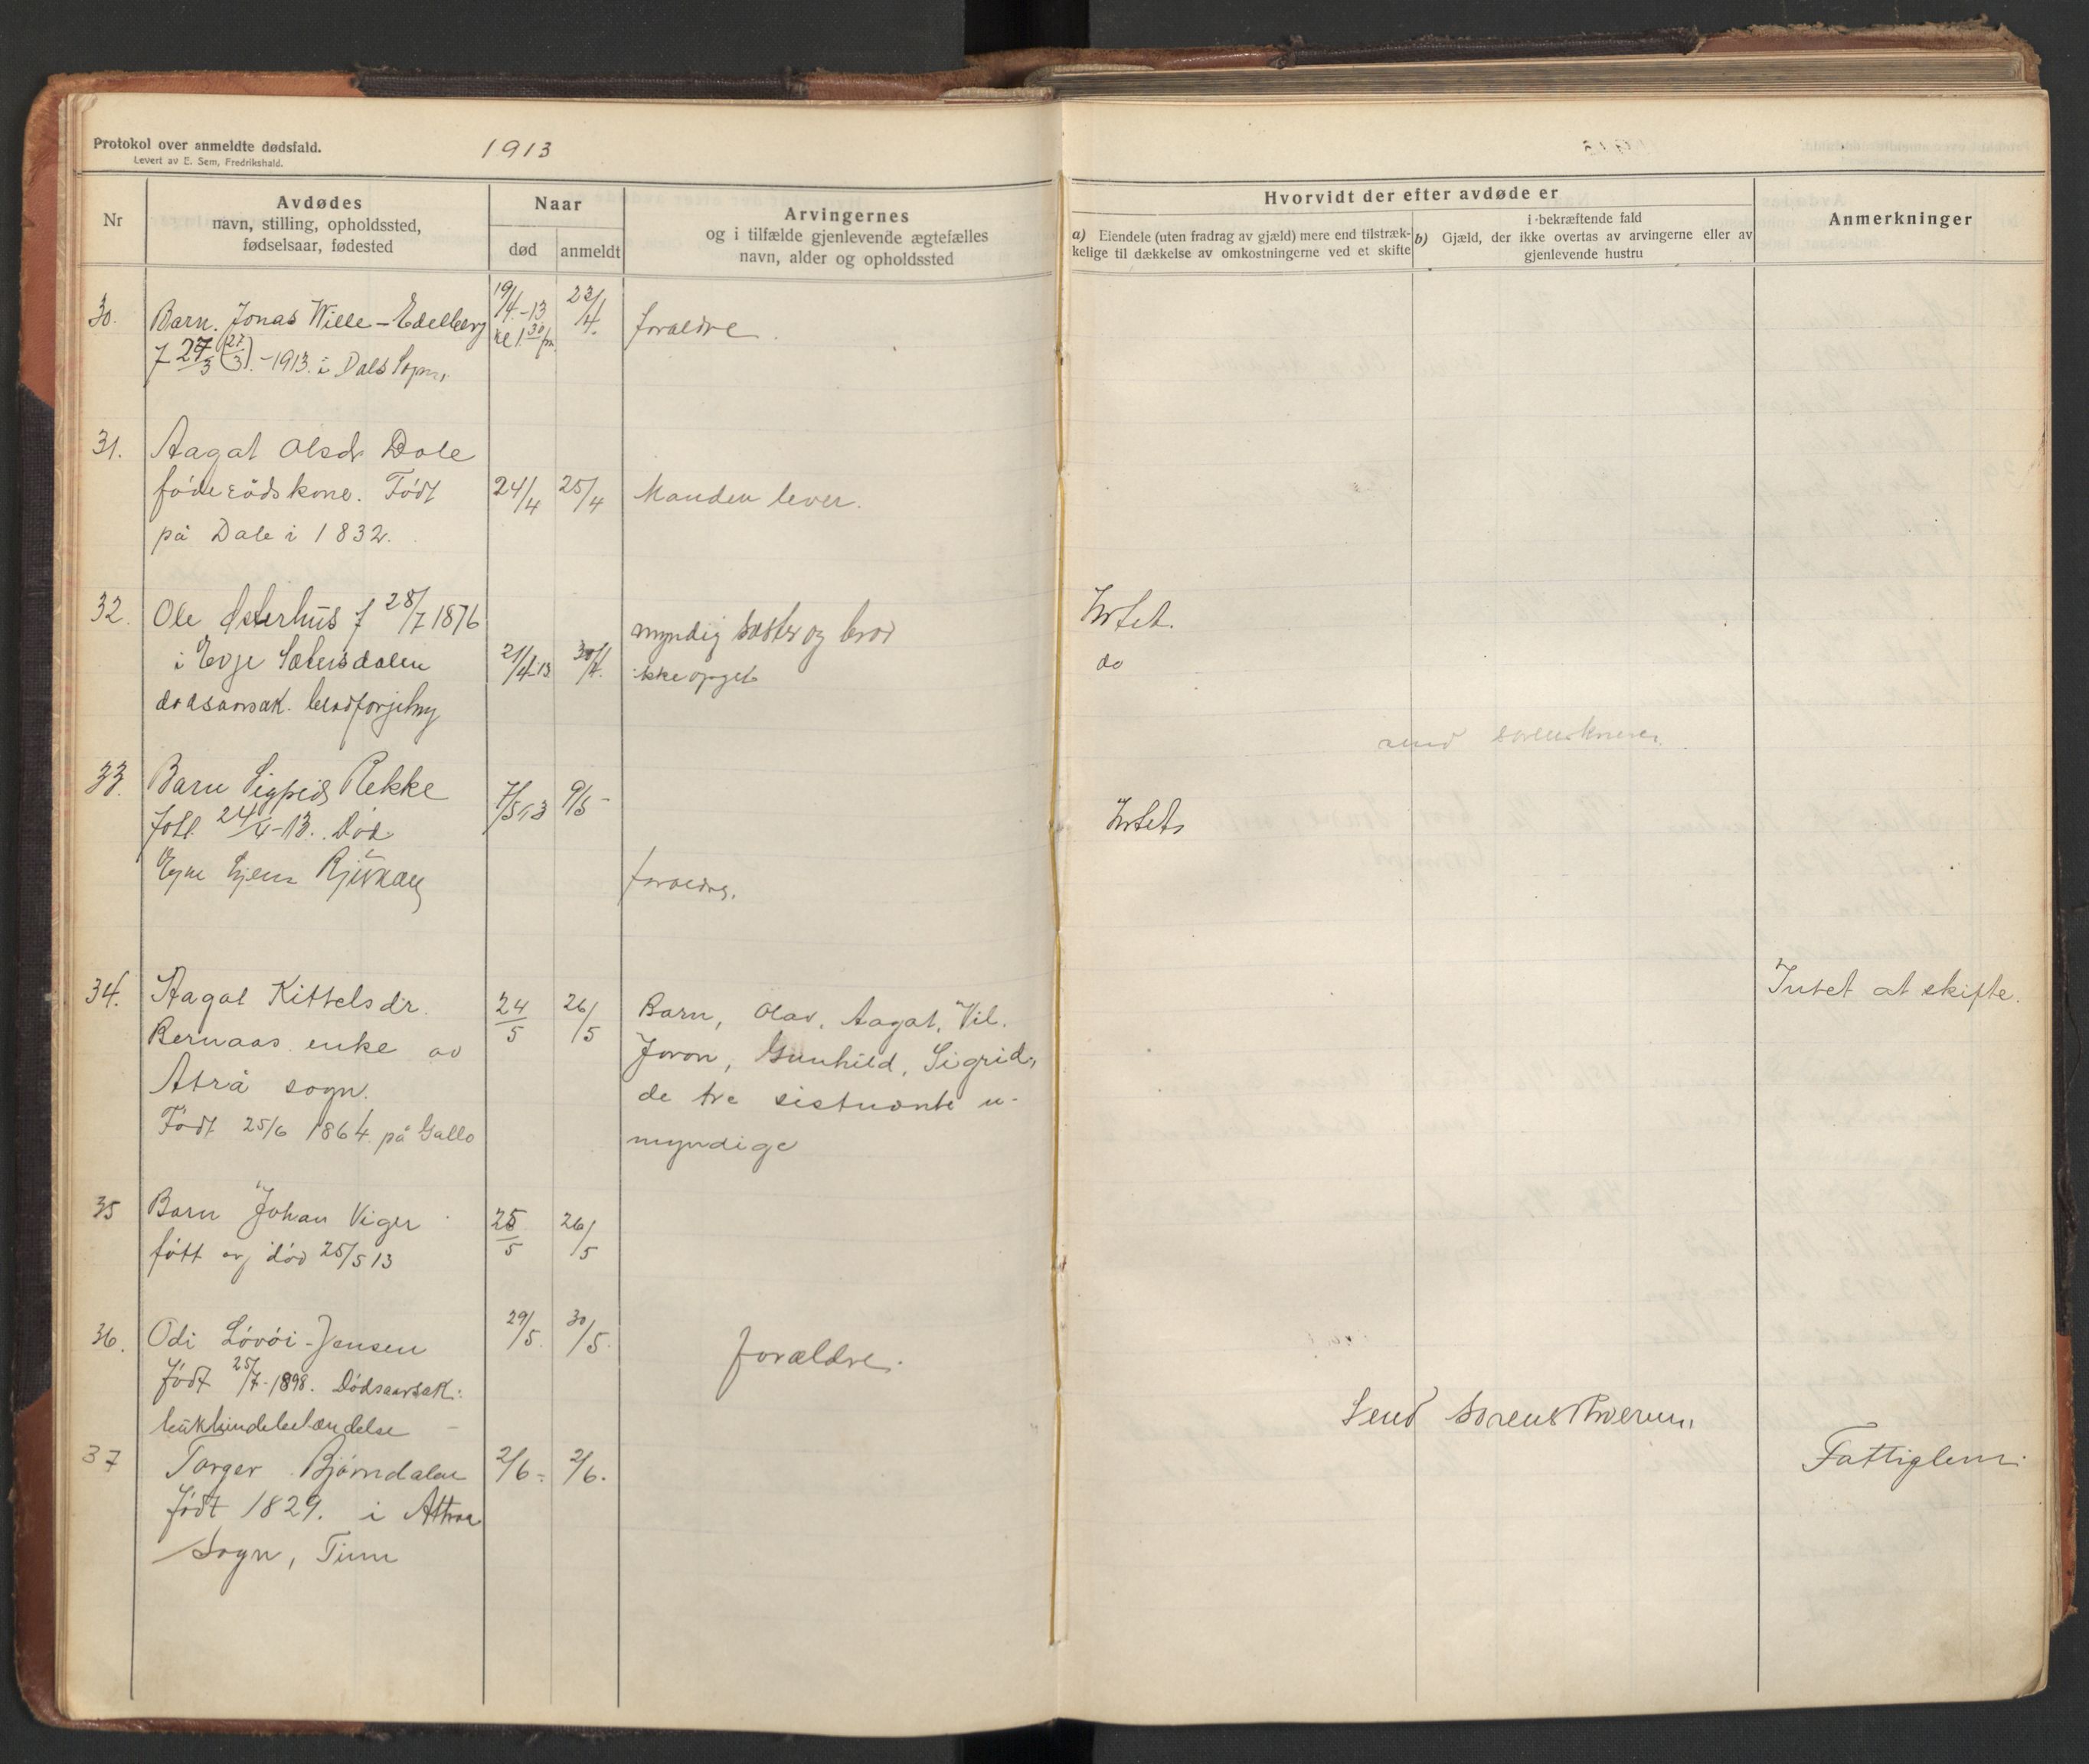 Protokol over anmeldte dødsfald.
Levert av E. Sem, Fredrikshald.
1913
Nr
Avdødes
navn, stilling, opholdssted,
fødselsaar, fødested
Naar
død
anmeldt
Arvingernes
og i tilfælde gjenlevende ægtefælles
navn, alder og opholdssted
Hvorvidt der efter avdøde er
a) Eiendele (uten fradrag av gjæld) mere end tilstræk-
kelige til dækkelse av omkostningerne ved et skifte
i bekræftende fald
b) Gjæld, der ikke overtas av arvingerne eller av
gjenlevende hustru
Anmerkninger
30. Barn. Jonas Wille-Edelberg 19/4-13 23/4. foraldre.
kl 1.30 fm.
f 27/3 (27/3).-1913. i Dals Sogn.
31. Aagat Olsdr Dole
föderådskone. Födt 24/4 25/4 Manden lever.
på Dale i 1832.
32. Ole Østerhus f 28/7 1876
myndig søster og bror Intet.
i Evje Sætersdalen 21/4-13 30/4. ikke opget do
dødsaarsak.
send sorenskriveren
33. Barn Rekke 7/5 13 9/5 Intet
født 24/4-13. Død
Rjukan foraldre.
34. Aagat Kittelsdr. 24/5 26/5 Barn, Olav, Aagat, Vil. Intet at skifte.
Bernaas enke av Joron, Gunhild, Sigrid,
Atrå sogn. de tre sistnævnte u-
Født 25/6 1864. på Gallo myndige
35 Barn Johan Viger 25/5 26/5
fött og död 25/5 13
36. Odi Lövöi-Jensen 29/5. 30/5. forældre.
födt 25/7-1898. Dödsaarsak:
bukhindebetændelse
Send Sorenskriveren
37 Torger Bjørndalen 2/6- 2/6. Fattiglem.
født 1829. i Attraa
Sogn, Tinn